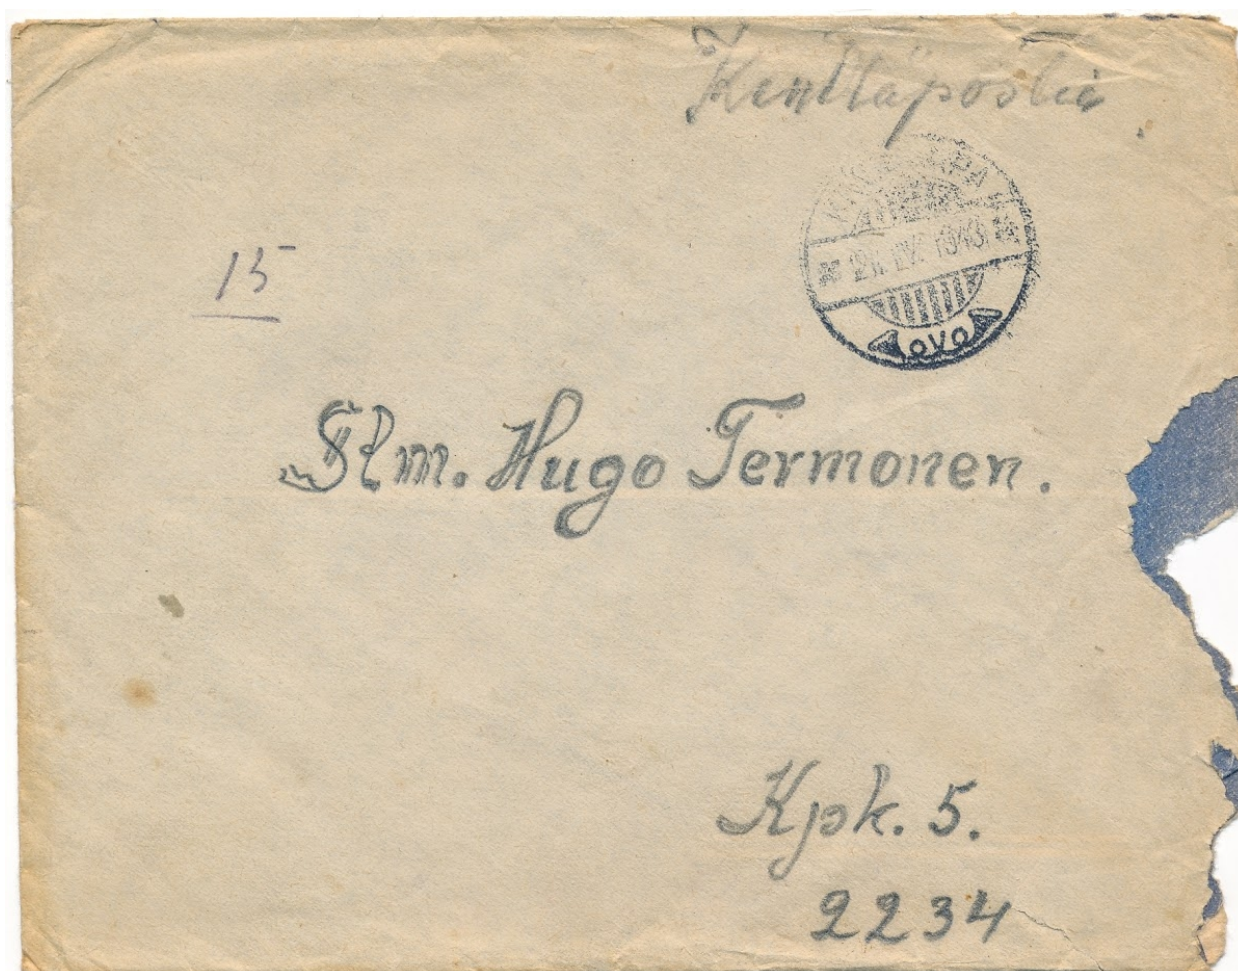 Kenttäpostia.
21. IV. 1943
OVO
15
Rm. Hugo Termonen.
Kpk. 5.
2234